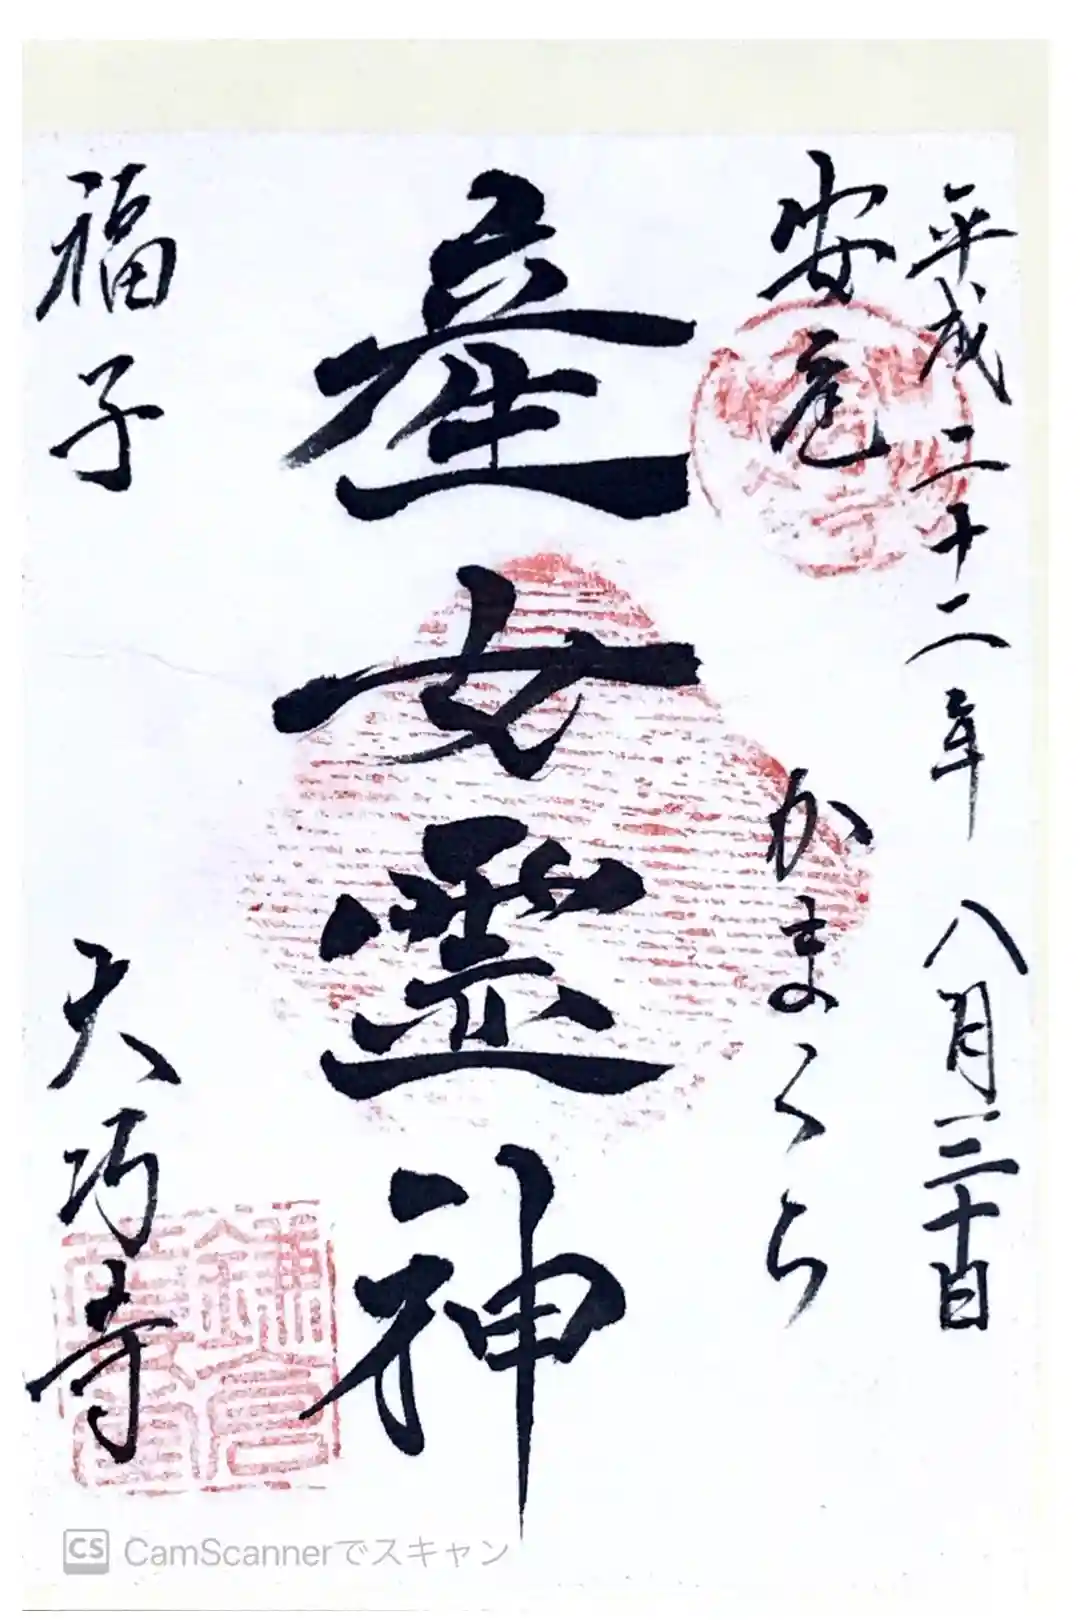 平成二十二年 八月三十日
安産
かまくら
産女霊神
福子
大巧寺
CS CamScannerでスキャン